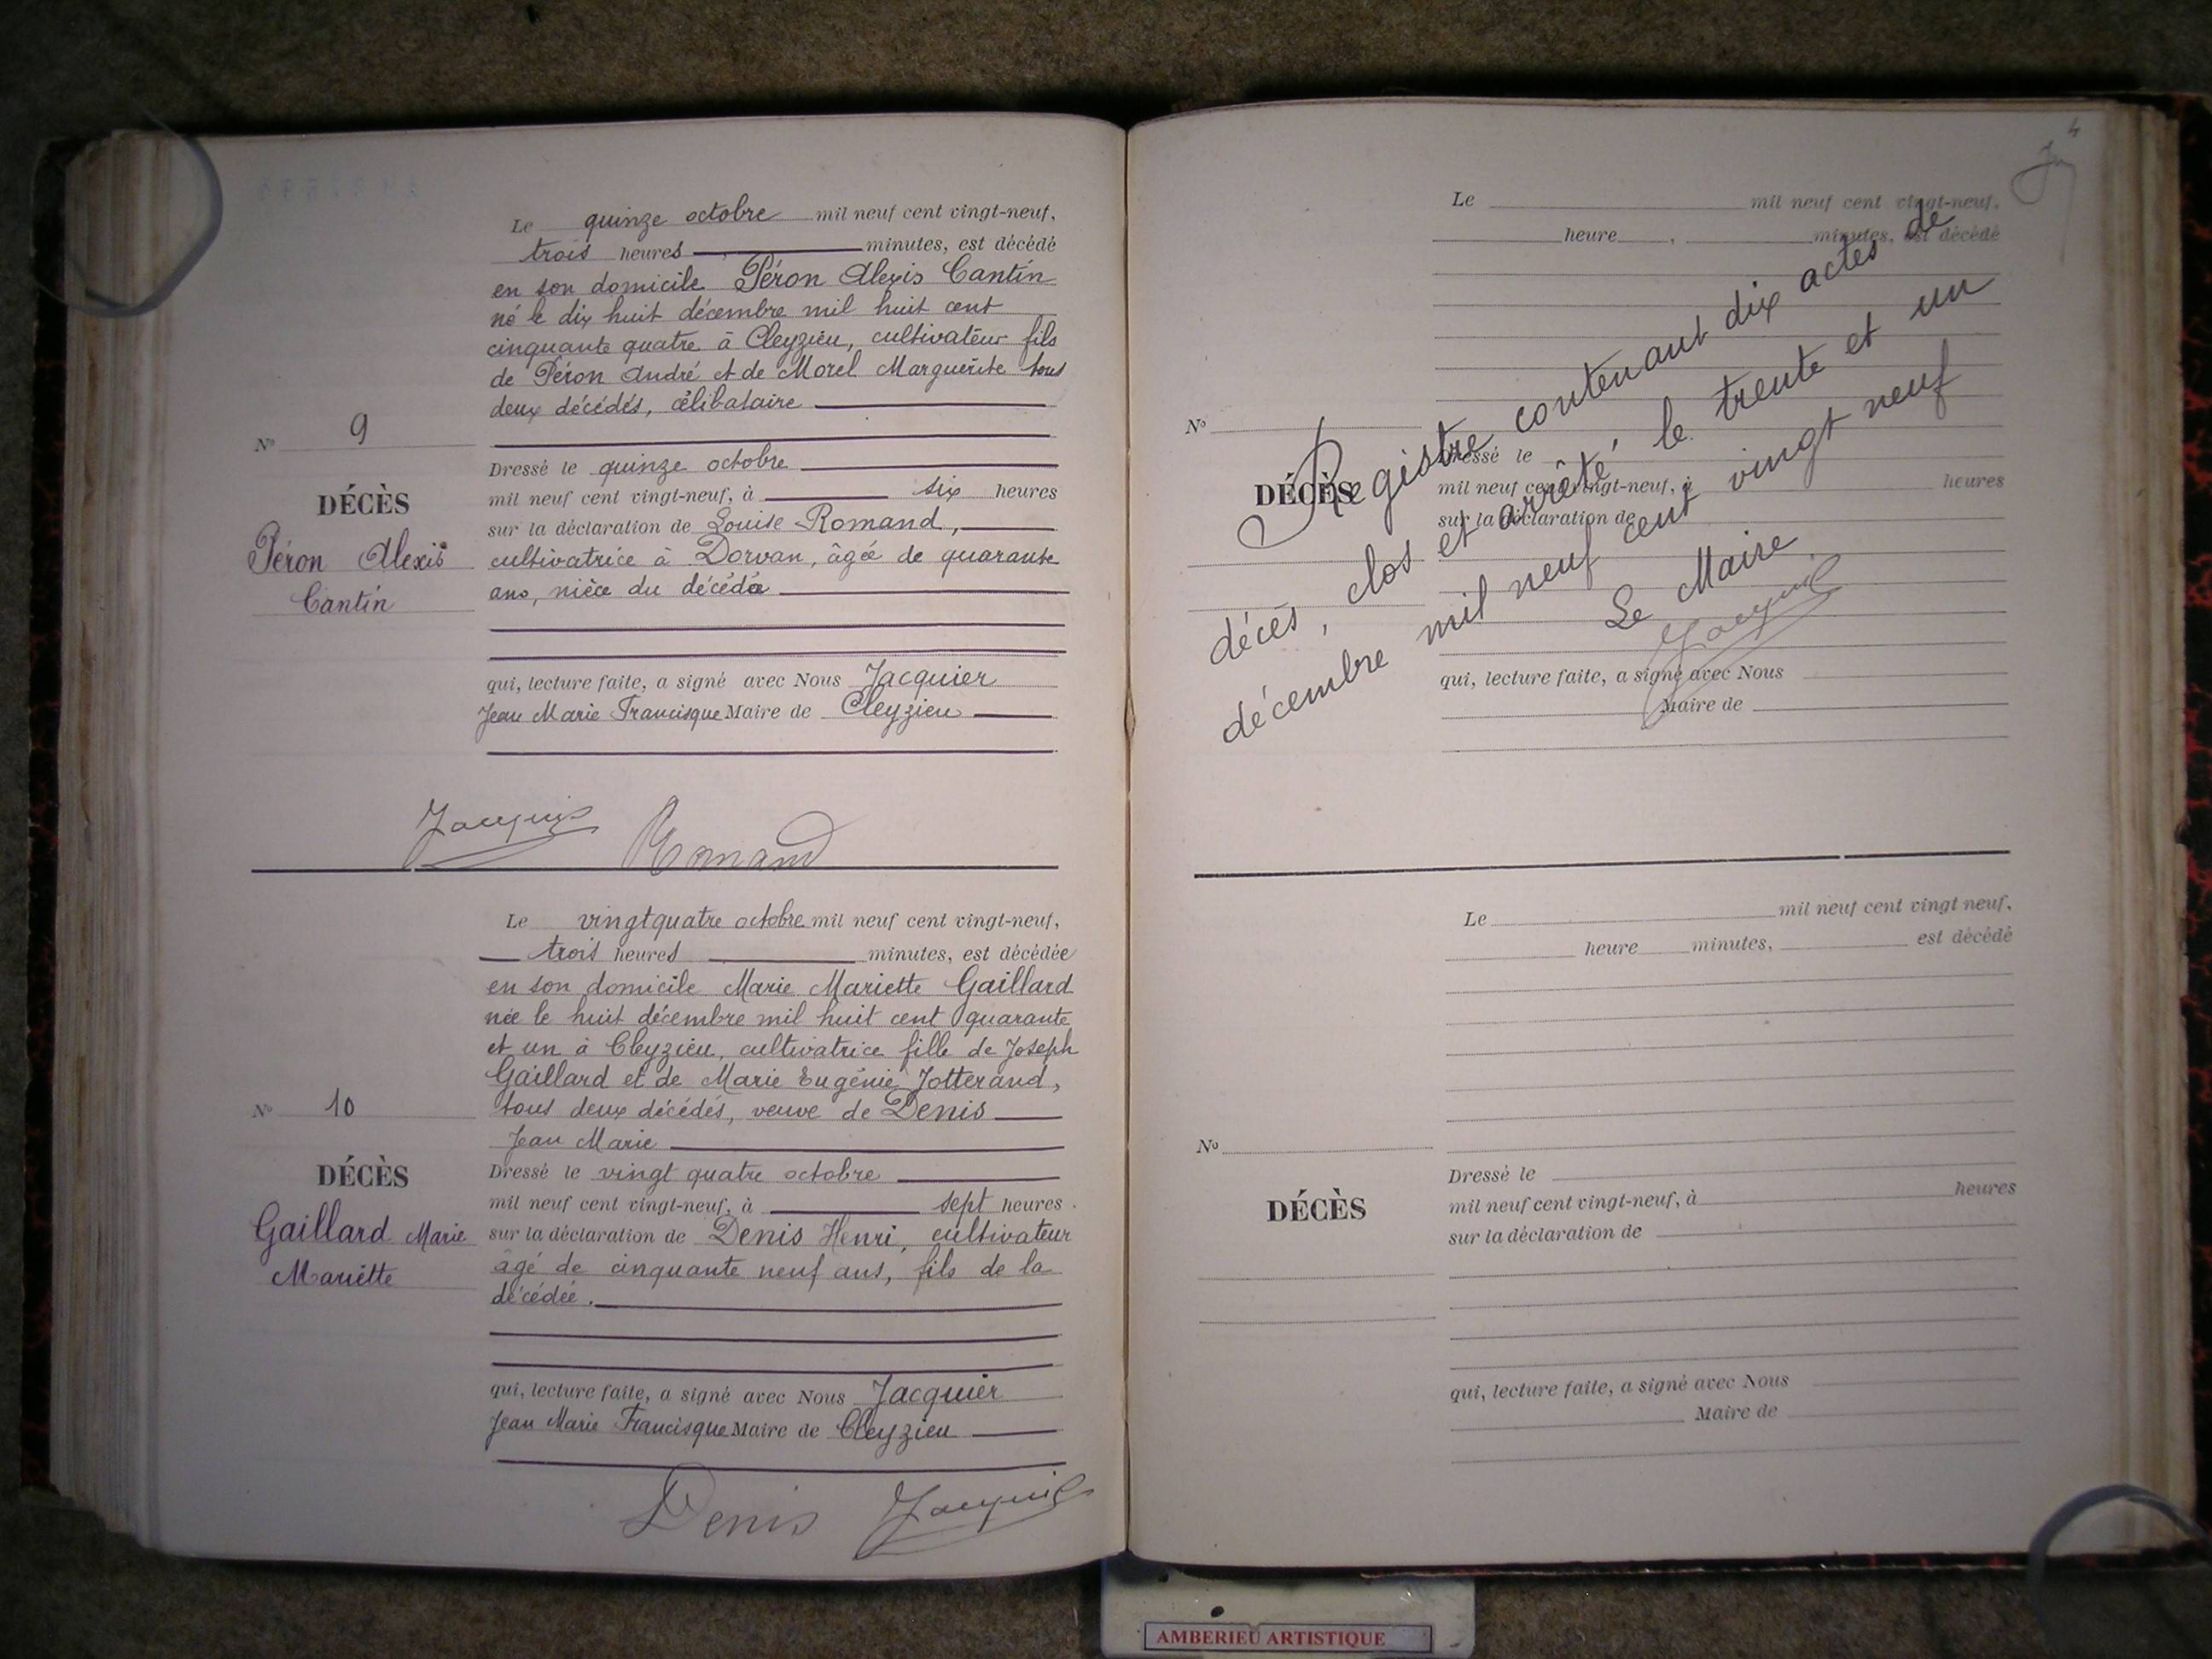 Le quinze octobre mil neuf cent vingt-neuf,
trois heures minutes, est décédé
en son domicile Péron Alexis Cantin
né le dix huit décembre mil huit cent
cinquante quatre à Cleyzieu, cultivateur fils
de Péron André et de Morel Marguerite tous
deux décédés, célibataire
No 9
Dressé le quinze octobre
mil neuf cent vingt-neuf, à six heures
DÉCÈS
sur la déclaration de Louise Romand,
Péron Alexis
cultivatrice à Dorvan, âgée de quarante
Cantin
ans, nièce du décédé
qui, lecture faite, a signé avec Nous Jacquier
Jean Marie Francisque Maire de Cleyzieu
Jacquier Romand
Le vingt quatre octobre mil neuf cent vingt-neuf,
trois heures minutes, est décédée
en son domicile Marie Mariette Gaillard
née le huit décembre mil huit cent quarante
et un à Cleyzieu, cultivatrice fille de Joseph
Gaillard et de Marie Eugénie Jotterand,
No 10
tous deux décédés, veuve de Denis
Jean Marie
DÉCÈS
Dressé le vingt quatre octobre
mil neuf cent vingt-neuf, à sept heures
Gaillard Marie
sur la déclaration de Denis Henri, cultivateur
Mariette
âgé de cinquante neuf ans, fils de la
décédée.
qui, lecture faite, a signé avec Nous Jacquier
Jean Marie Francisque Maire de Cleyzieu
Denis Jacquier
4
Le mil neuf cent vingt-neuf,
heure , minutes, est décédé
No
Dressé le
DÉCÈS
mil neuf cent vingt-neuf, à heures
sur la déclaration de
qui, lecture faite, a signé avec Nous
Maire de
Registre contenant dix actes de
décès, clos et arrêté le trente et un
décembre mil neuf cent vingt neuf
Le Maire
Jacquier
Le mil neuf cent vingt neuf,
heure minutes, est décédé
No
Dressé le
DÉCÈS
mil neuf cent vingt-neuf, à heures
sur la déclaration de
qui, lecture faite, a signé avec Nous
Maire de
AMBERIEU ARTISTIQUE